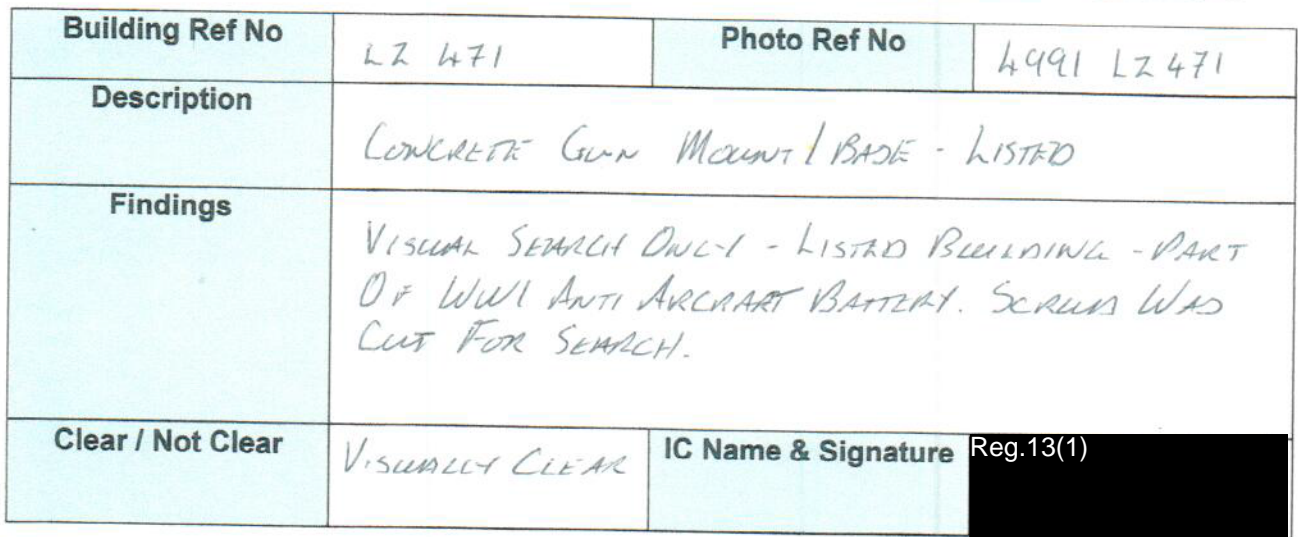 Building Ref No LZ 471 Photo Ref No 4991 LZ 471
Description
CONCRETE GUN MOUNT / BASE - LISTED
Findings
VISUAL SEARCH ONLY - LISTED BUILDING - PART
OF WWI ANTI AIRCRAFT BATTERY. SCRUB WAS
CUT FOR SEARCH.
Clear / Not Clear VISUALLY CLEAR IC Name & Signature Reg.13(1)